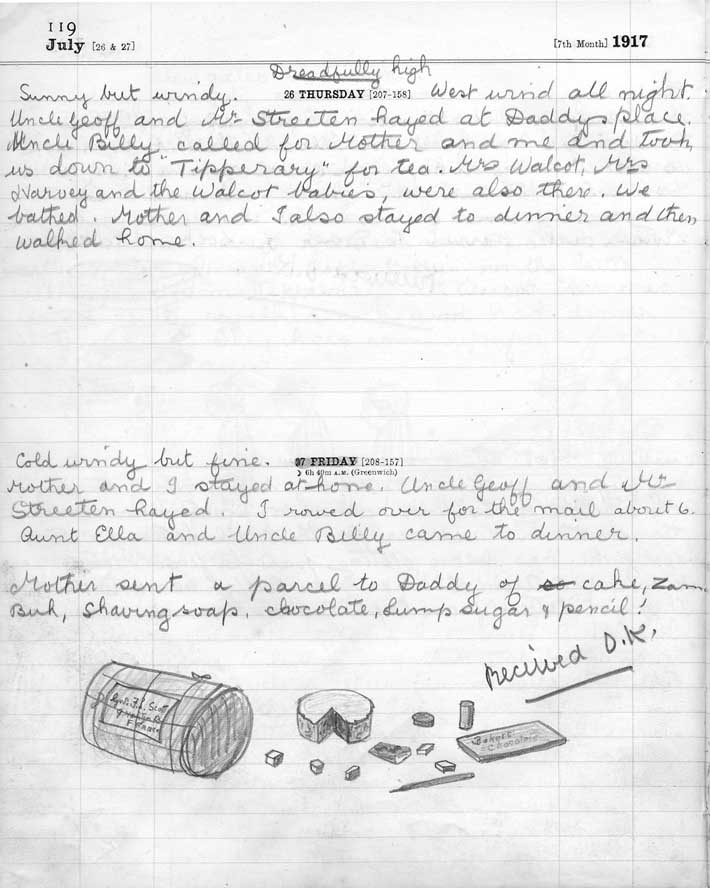 119
July [26 & 27] [7th Month] 1917
Dreadfully high
Sunny but windy. 26 THURSDAY [207-158] West wind all night.
Uncle Geoff and Mr Streeten hayed at Daddys place.
Uncle Billy called for Mother and me and took
us down to "Tipperary" for tea. Mrs Walcot, Mrs
Harvey and the Walcot babies, were also there. We
bathed. Mother and I also stayed to dinner and then
walked home.
Cold windy but fine. 27 FRIDAY [208-157]
6h 40m A.M. (Greenwich)
Mother and I stayed at home. Uncle Geoff and Mr
Streeten hayed. I rowed over for the mail about 6.
Aunt Ella and Uncle Billy came to dinner.
Mother sent a parcel to Daddy of so cake, Zam
Buk, Shaving soap, chocolate, Lump sugar & pencil!
Recieved O.K.
Scott
France
Bakers
Chocolate